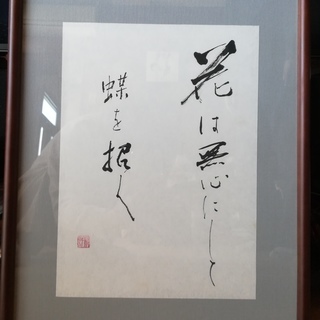 花は無心にして
蝶を招く